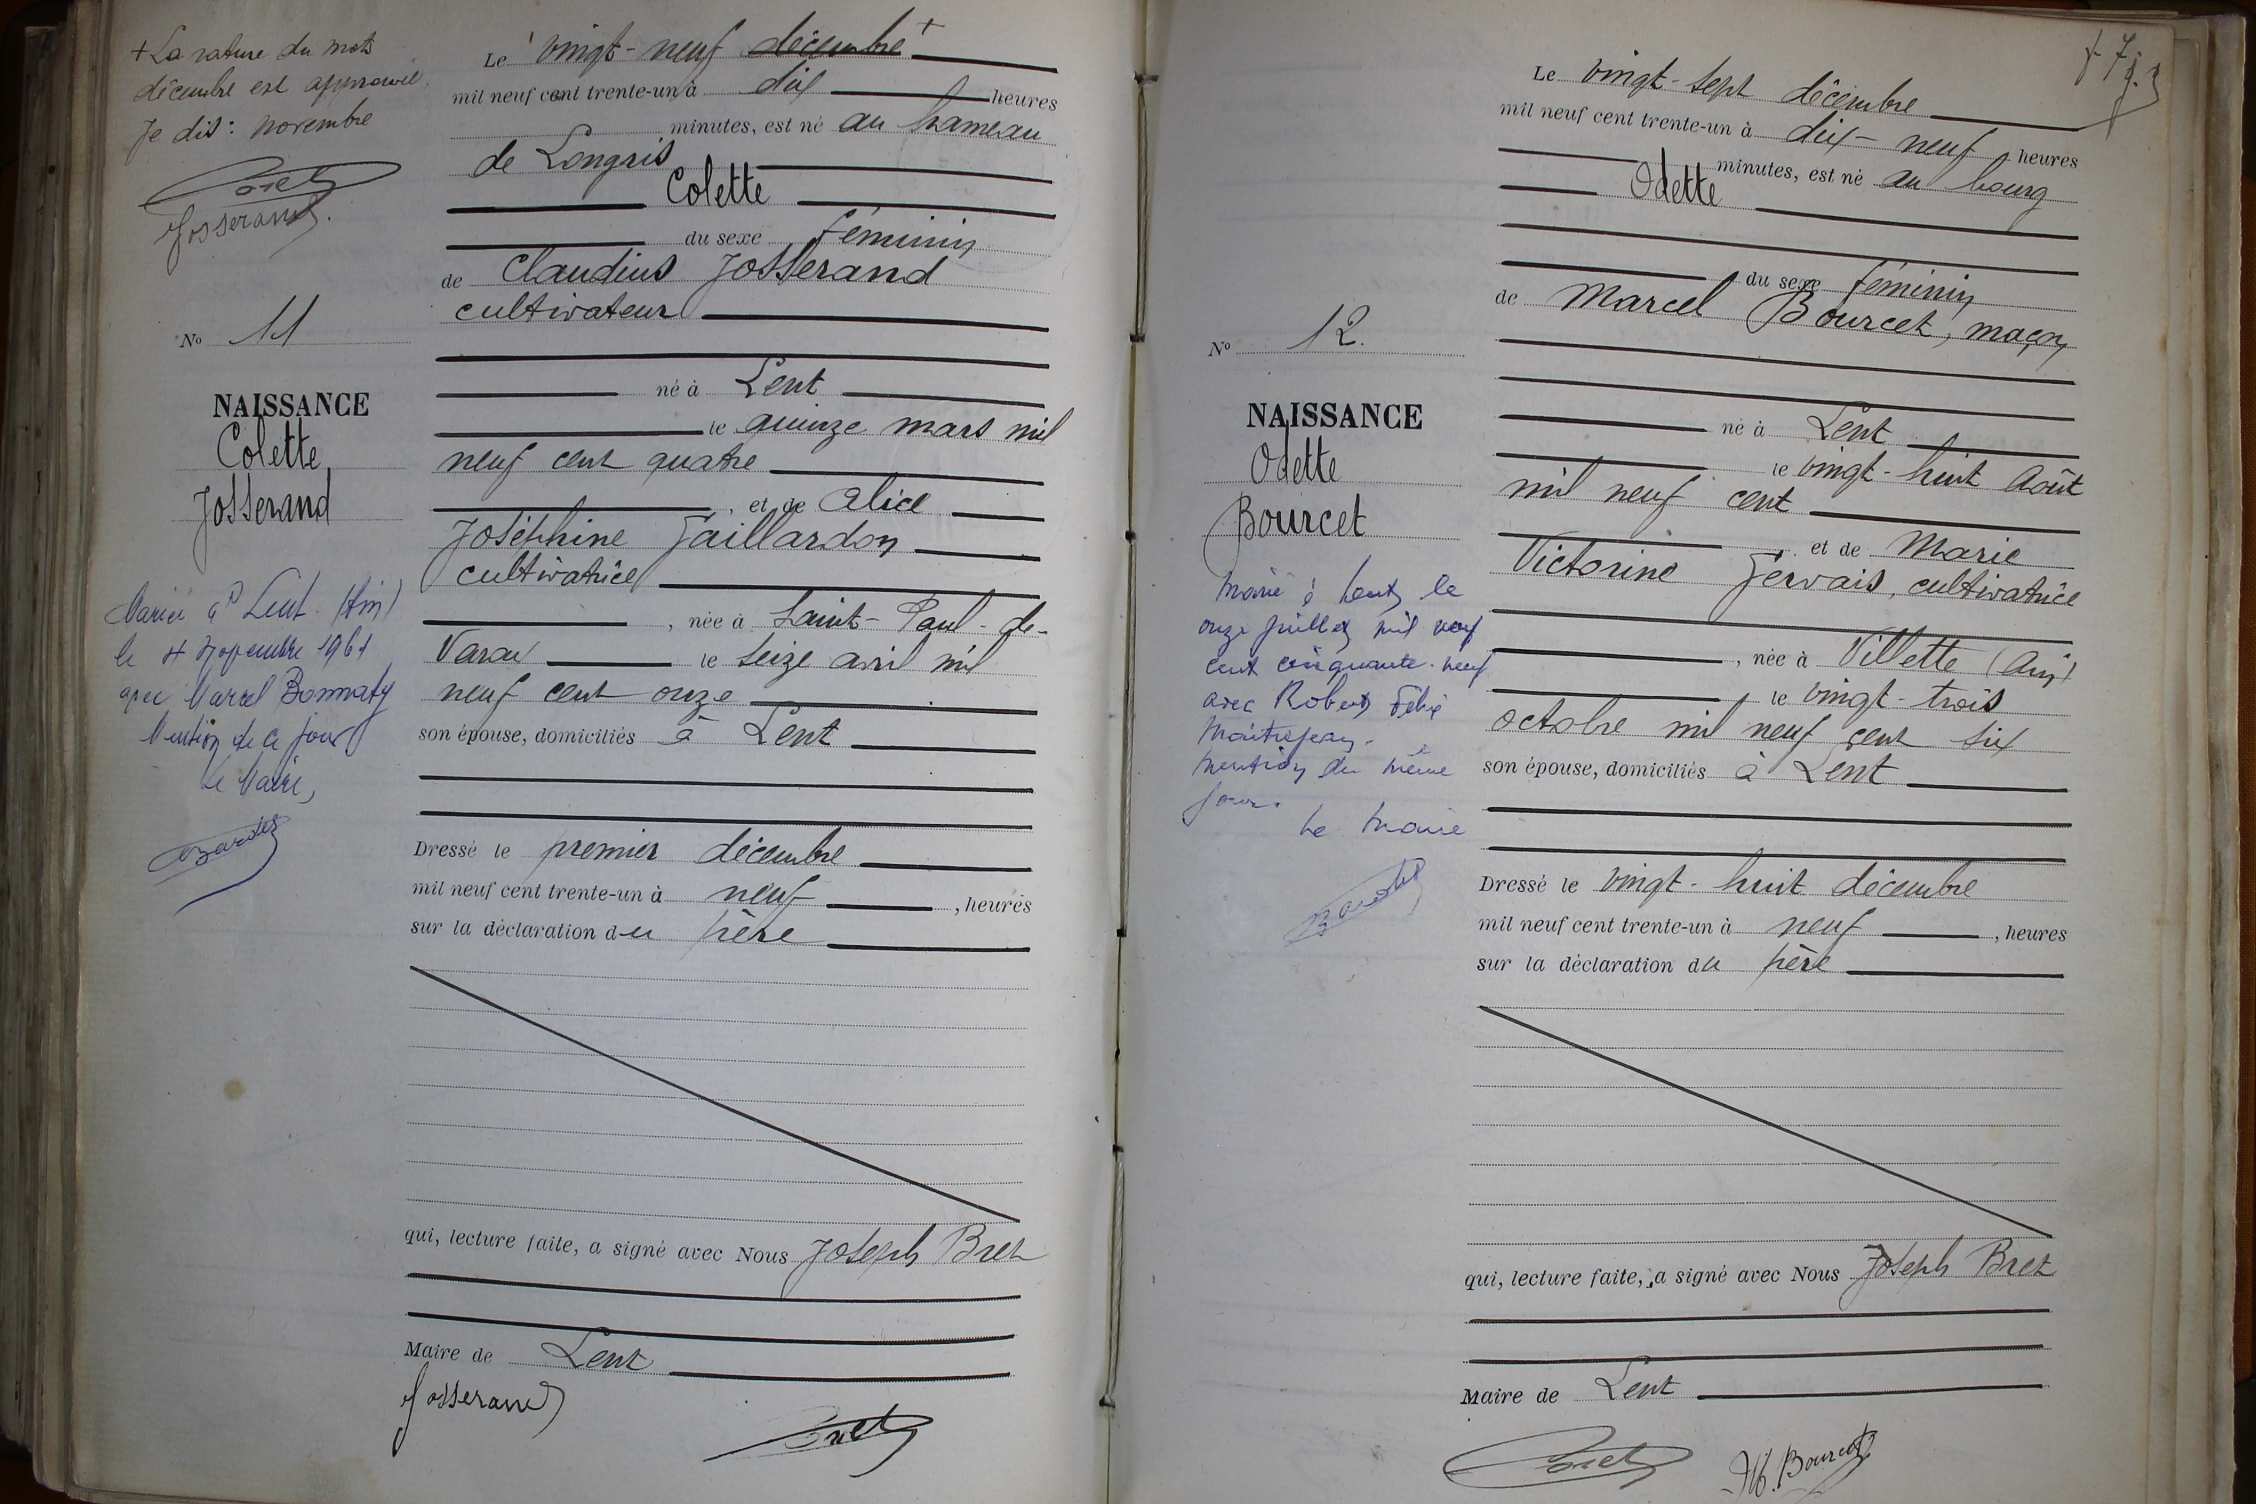 + La rature du mots
décembre est approuvé
Je dis : novembre
Bret
Josserand
N° 11
NAISSANCE
Colette
Josserand
Mariée à Lent (Ain)
le 4 novembre 1961
avec Marcel Bonnaty
Mention de ce jour
Le Maire,
Le vingt-neuf décembre +
mil neuf cent trente-un à dix heures
minutes, est né au hameau
de Longris
Colette
du sexe féminin
de Claudius Josserand
cultivateur
né à Lent
le quinze mars mil
neuf cent quatre
et de Alice
Joséphine Gaillardon
cultivatrice
, née à Saint-Paul-de-
Varax le seize avril mil
neuf cent onze
son épouse, domiciliés à Lent
Dressé le premier décembre
mil neuf cent trente-un à neuf , heures
sur la déclaration du père
qui, lecture faite, a signé avec Nous Joseph Bret
Maire de Lent
Josserand
Bret
N° 12.
NAISSANCE
Odette
Bourcet
Marié à Lent, le
onze juillet mil neuf
cent cinquante-neuf
avec Robert Félix
Maitrejean.
Mention du même
jour.
Le Maire
Le vingt-sept décembre
mil neuf cent trente-un à dix-neuf heures
minutes, est né au bourg
Odette
du sexe féminin
de Marcel Bourcet, maçon
né à Lent
le vingt-huit Août
mil neuf cent
et de Marie
Victorine Gervais, cultivatrice
, née à Villette (Ain)
le vingt-trois
octobre mil neuf cent six
son épouse, domiciliés à Lent
Dressé le vingt-huit décembre
mil neuf cent trente-un à neuf , heures
sur la déclaration du père
qui, lecture faite, a signé avec Nous Joseph Bret
Maire de Lent
Bret
M. Bourcet